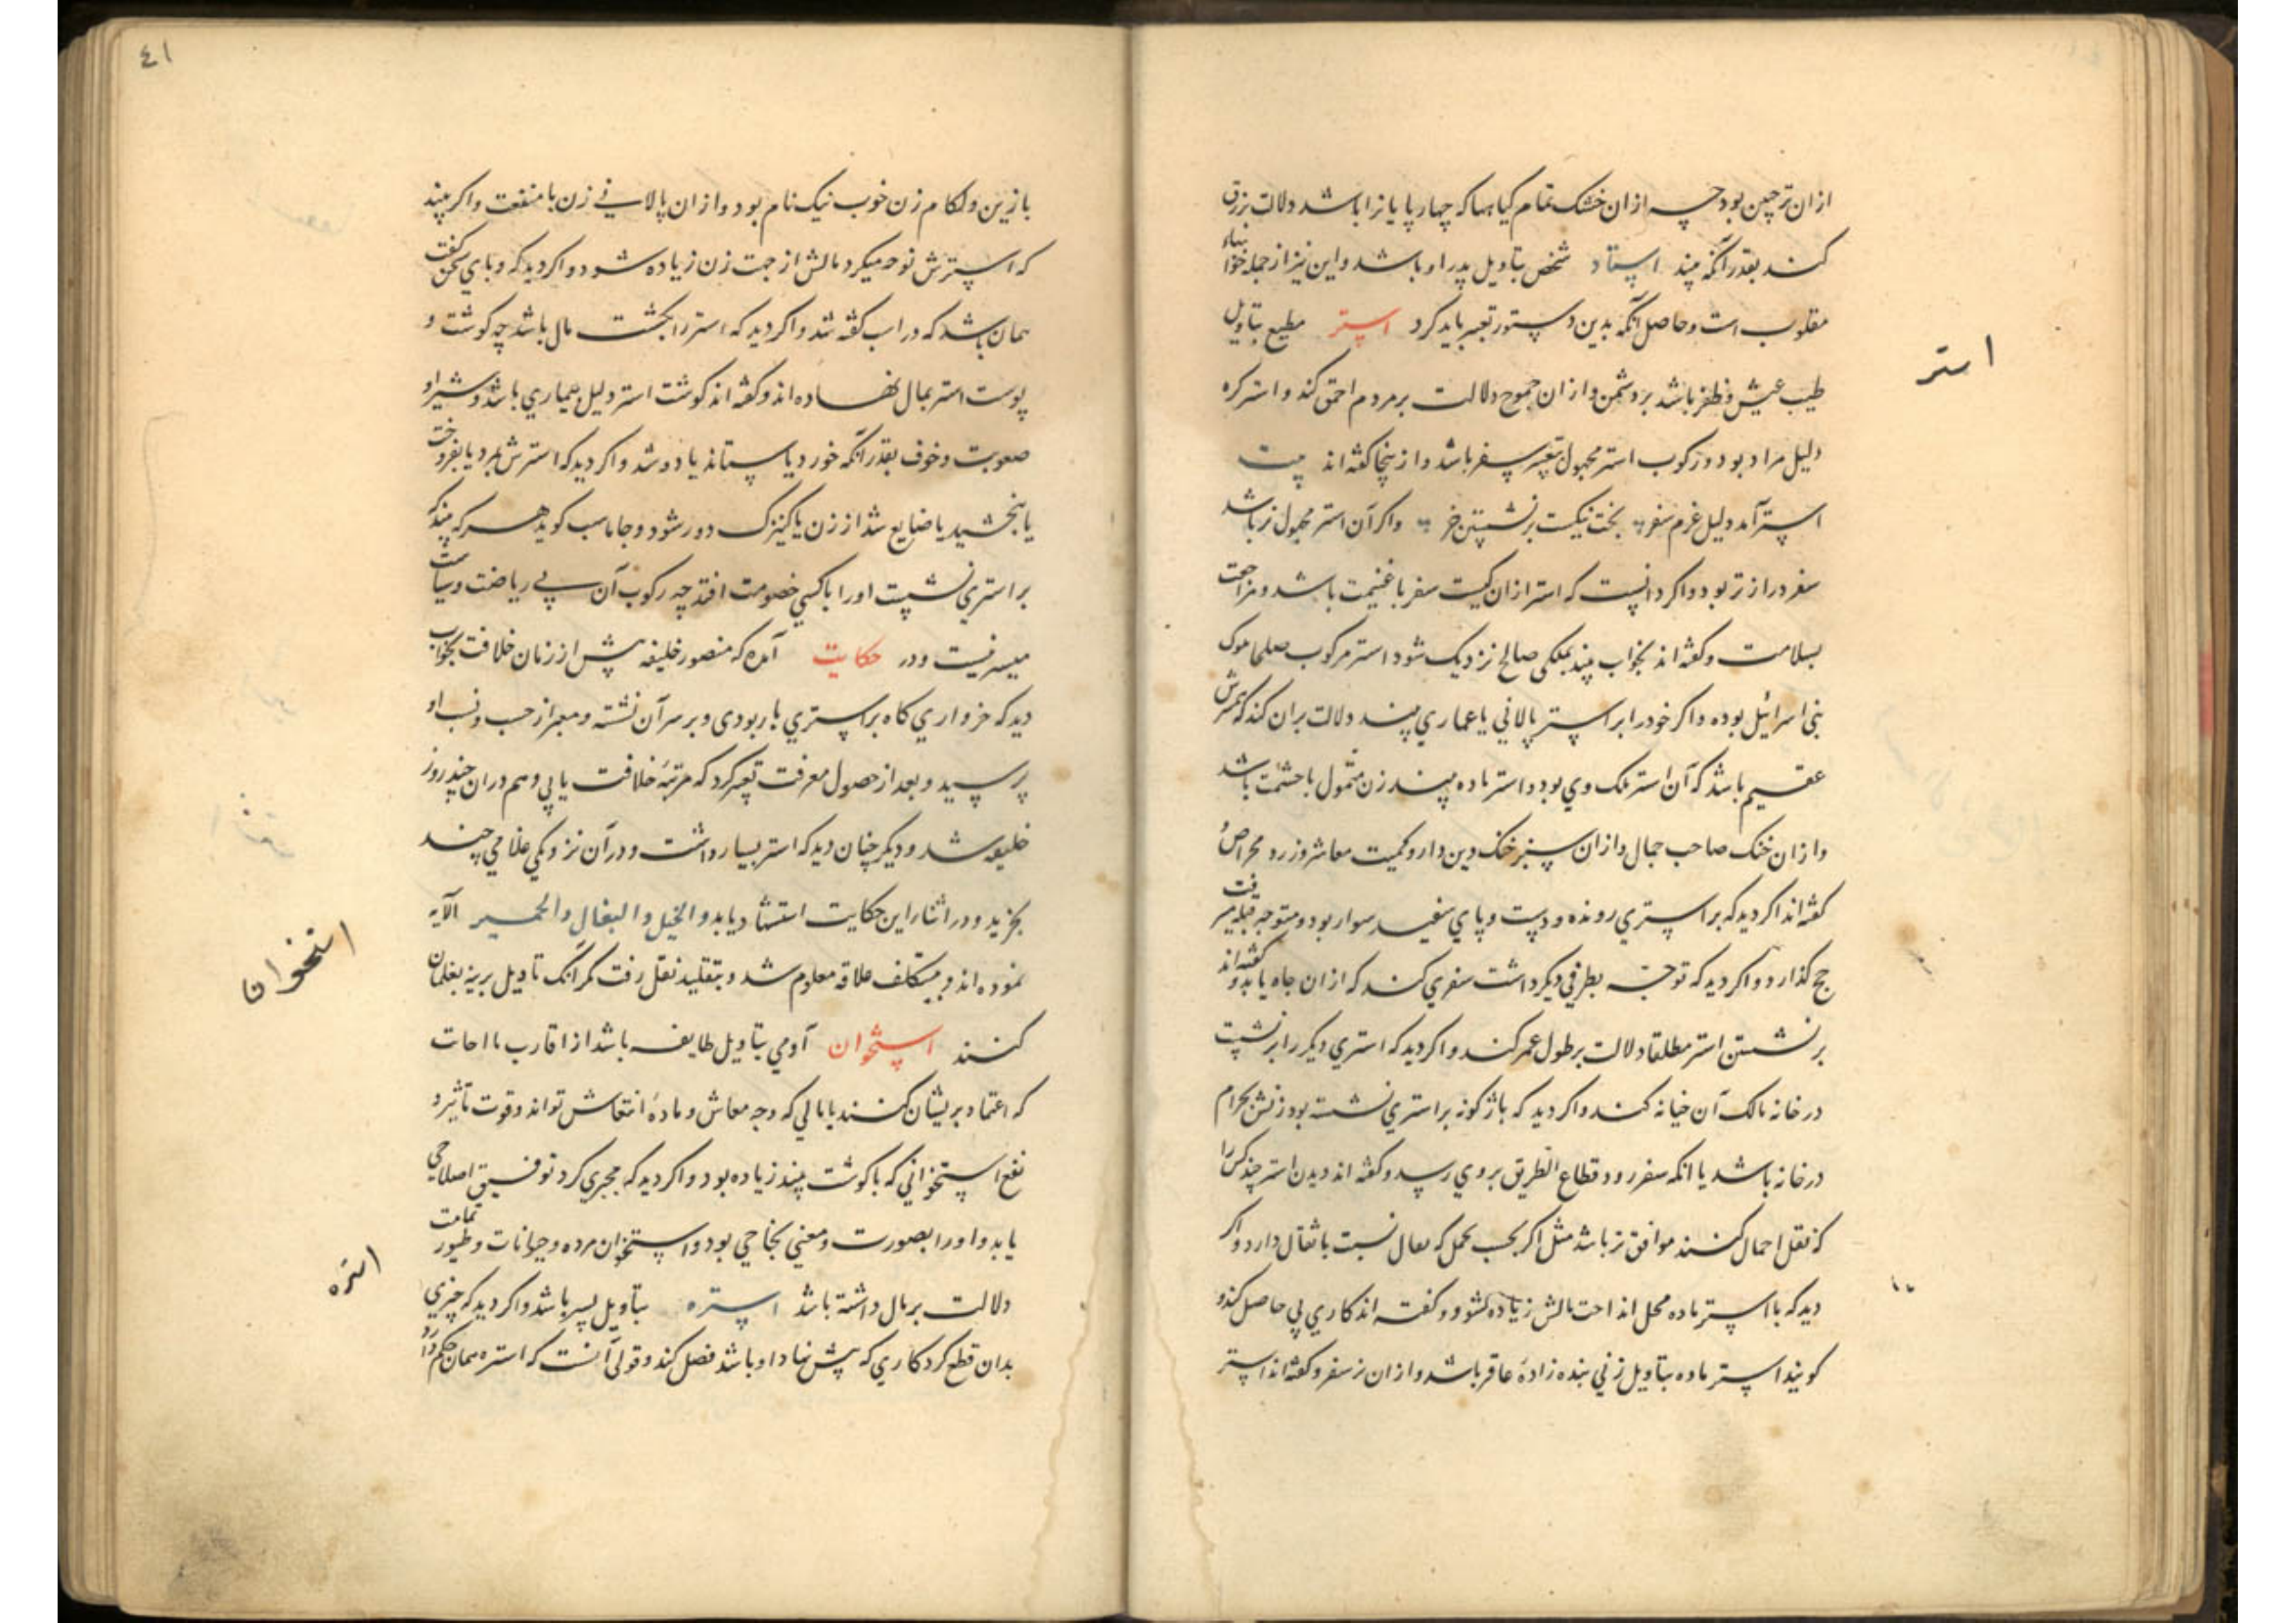 ازان ترچین بود چه ازان خشک تمام کیاهها که چهارپایانرا باشد دلالت برزق
کند بقدر آنکه بیند استاد شخص بتاویل پدر او باشد و این نیز از جمله خوابهاء
مقلوب است و حاصل آنکه بدین دستور تعبیر باید کرد استر مطیع بتاویل
استر
طیب عیش و ظفر باشد بر دشمن و ازان جموح دلالت بر مردم احمق کند و استر کره
دلیل مراد بود و رکوب استر مجهول بتعبیر سفر باشد و ازینجا کفته اند بیت
استر آمد دلیل عزم سفر بخت نیکست برنشستن خر و اکر آن استر مجهول نر باشد
سفر دراز تر بود و اکر دانست که استر ازان کیست سفر با غنیمت باشد و مراجعت
بسلامت و کفته اند بخواب بیند بملکی صالح نزدیک شود استر مرکوب صلحا ملوک
بنی اسرائیل بوده و اکر خود را بر استر پالانی یا عماری بیند دلالت بران کند که زنش
عقیم باشد که آن استر ملک وی بود و استر ماده بیند زن متمول با حشمت باشد
و ازان خنک صاحب جمال و ازان سبز خنک دین دار و کمیت معاشر و زرد ممراض
کفته اند اکر دید که بر استری رونده و دست و پای سفید سوار بود و متوجه قبله میرفت
حج کذارد و اکر دید که توجه بطرفی دیکر داشت سفری کند که ازان جاه یابد و کفته اند
برنشستن استر مطلقا دلالت بر طول عمر کند و اکر دید که استری دیکر را برنشست
در خانه مالک آن خیانه کند و اکر دید که باژکونه بر استری نشسته بود زنش بحرام
در خانه باشد یا انکه سفر رود قطاع الطریق بروی رسد و کفته اند دیدن استر چند کس را
که نقل احمال کنند موافق تر باشد مثل اکر بحسب بحمل که بغال نسبت باثقال دارد و اکر
دید که با استر ماده محل انداخت مالش زیاده شود و کفته اند کاری پی حاصل کند و
کویند استر ماده بتاویل زنی بنده زادۀ عاقر باشد و ازان نر سفر و کفته اند استر
٤١
با زین و لکام زن خوب نیک نام بود و ازان پالانی زن با منفعت و اکر بیند
که استرش نوحه میکرد مالش از جهت زن زیاده شود و اکر دید که با وی سخن کفت
همان باشد که در اسب کفته شد و اکر دید که استر را بکشت مال باشد چه کوشت و
پوست استر بمال نهاده اند و کفته اند کوشت استر دلیل بیماری باشد و شیر او
صعوبت و خوف بقدر آنکه خورد یا ستاند یا دوشد و اکر دید که استرش بمرد یا بفروخت
یا ببخشید یا ضایع شد از زن یا کنیزک دور شود و جاماسب کوید هر که بیند که
بر استری نشست او را با کسی خصومت افتد چه رکوب آن بی ریاضت و سیاست
میسر نیست و در حکایت آمده که منصور خلیفه پیش از زمان خلافت بخواب
دید که خرواری کاه بر استری بار بودی و بر سر آن نشسته و معبر از حسب و نسب او
پرسید و بعد از حصول معرفت تعبیر کرد که مرتبۀ خلافت یابی و هم دران چند روز
خلیفه شد و دیکر چنان دید که استر بسیار داشت و در آن نزدیکی غلامی چند
بخرید و در اثناء این حکایت استشهاد یابد والخیل والبغال والحمیر الآیه
نموده اند و بی تکلف علاقه معلوم شد و بتقلید نقل رفت مکر آنک تاویل برینه بغلمان
استخوان
کنند استخوان آدمی بتاویل طایفه باشد از اقارب یا احباب
که اعتماد بریشان کنند یا مالی که وجه معاش و مادۀ انتعاش تواند و قوت تاثیر و
نفع استخوانی که با کوشت بیند زیاده بود و اکر دید که مجبری کرد توفیق اصلاحی
یابد و او را بصورت و معنی نجاحی بود و استخوان مرده و حیوانات و طیور تمامت
استره
دلالت بر مال داشته باشد استره بتاویل پسر باشد و اکر دید که چیزی
بدان قطع کرد کاری که پیش نهاد او باشد فصل کند و قولی آنست که استره همان حکم دارد